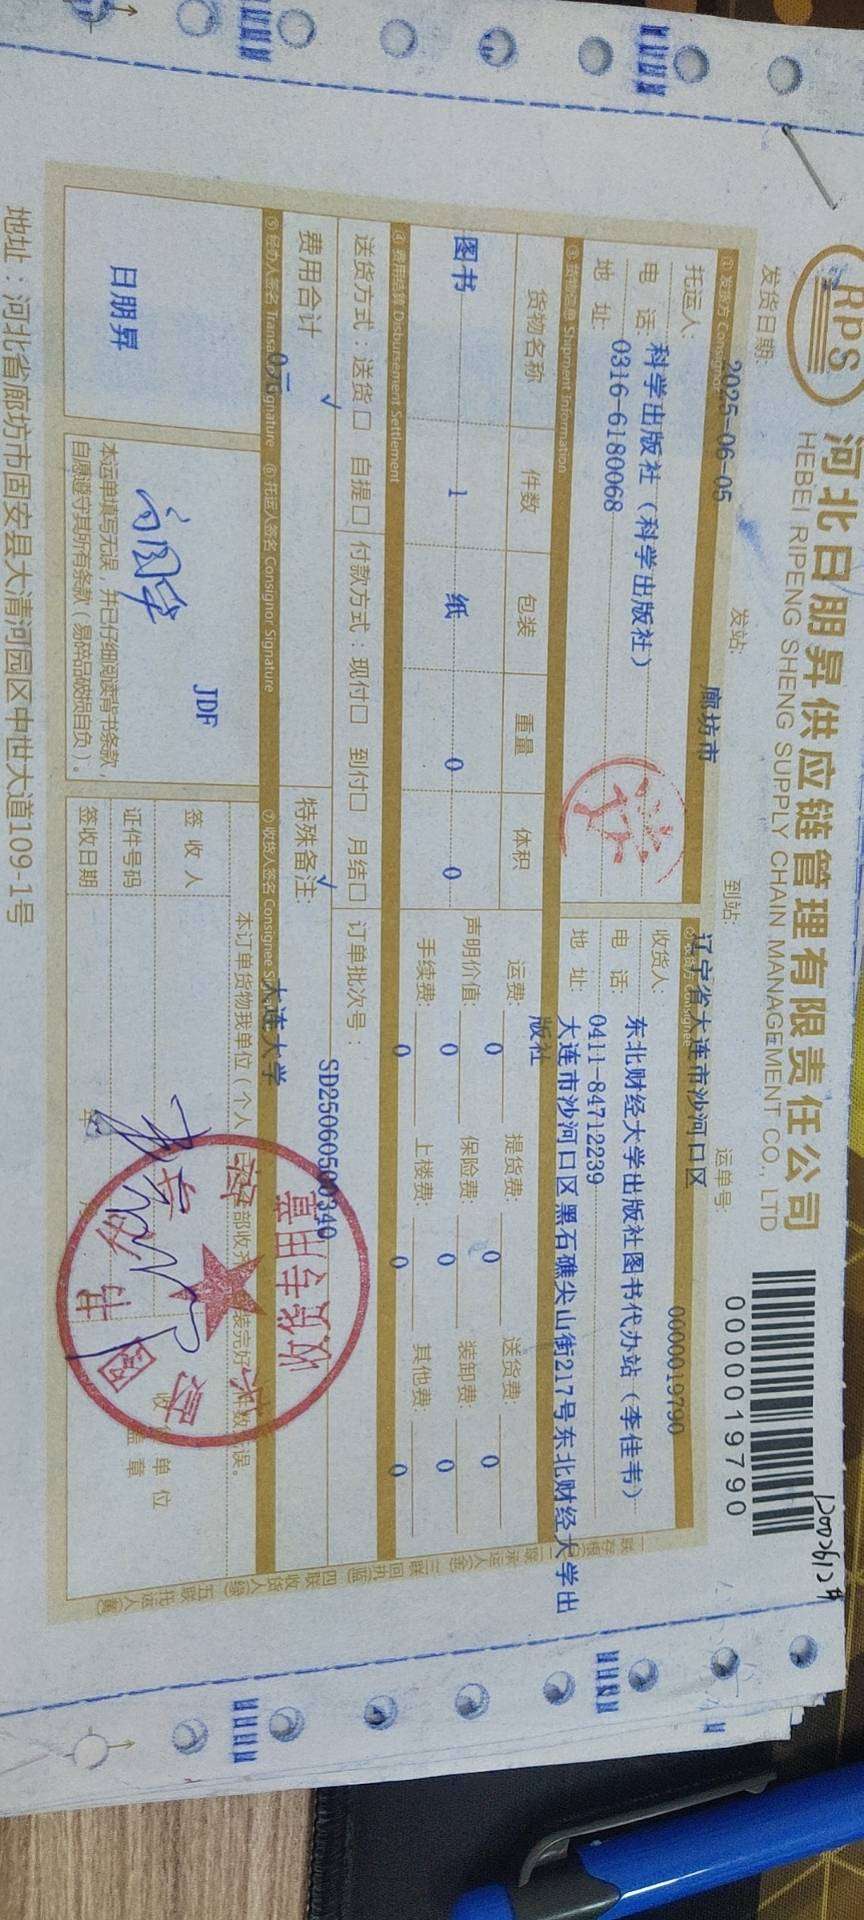 RPS
河北日朋昇供应链管理有限责任公司
HEBEI RIPENG SHENG SUPPLY CHAIN MANAGEMENT CO., LTD
0000019790
发货日期: 2025-06-05 发站: 廊坊市 到站: 辽宁省大连市沙河口区 运单号: 0000019790
① 发货方
托运人: 科学出版社（科学出版社） 收货人: 东北财经大学出版社图书代办站（李佳韦）
电 话: 0316-6180068 电 话: 0411-84712239
地 址: 地 址: 大连市沙河口区黑石礁尖山街217号东北财经大学出版社
③ 货物信息 Shipment Information
货物名称 件数 包装 重量 体积
图书 1 纸 0 0
运费: 0 提货费: 0 送货费: 0
声明价值: 0 保险费: 0 装卸费: 0
手续费: 0 上楼费: 0 其他费: 0
④ 费用结算 Disbursement Settlement
送货方式：送货□ 自提□ 付款方式：现付□ 到付□ 月结□ 订单批次号： SD25060500340
√ √
费用合计 0元 特殊备注: 大连大学
⑤ 经办人签名 ⑥ 托运人签名 Consignor Signature ⑦ 收货人签名
日朋昇
JDF
本运单填写无误，并已仔细阅读背书条款，
自愿遵守其所有条款（易碎品破损自负）。
签 收 人
证件号码:
签收日期:
收货专用章
地址：河北省廊坊市固安县大清河园区中世大道109-1号